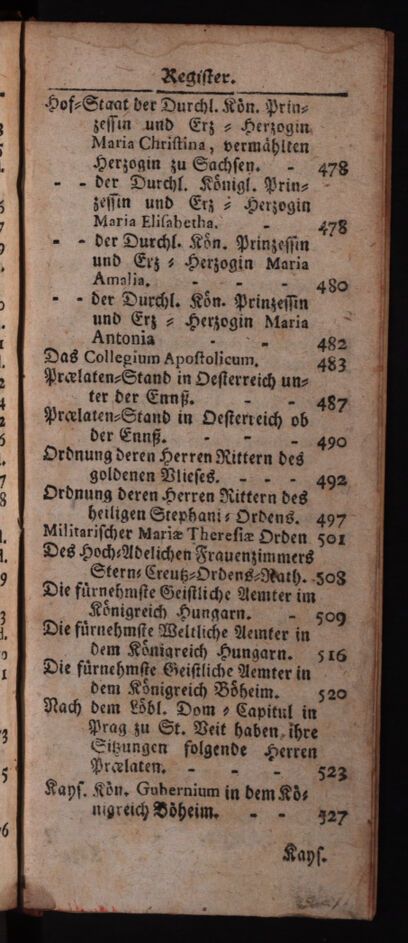 Register.
Hof-Staat der Durchl. Kön. Prin-
zessin und Erz-Herzogin
Maria Christina, vermählten
Herzogin zu Sachsen. - 478
- - der Durchl. Königl. Prin-
zessin und Erz-Herzogin
Maria Elisabetha. - 478
- - der Durchl. Kön. Prinzessin
und Erz-Herzogin Maria
Amalia. - - - 480
- - der Durchl. Kön. Prinzessin
und Erz-Herzogin Maria
Antonia - - 482
Das Collegium Apostolicum. 483
Prælaten-Stand in Oesterreich un-
ter der Ennß. - - 487
Prælaten-Stand in Oesterreich ob
der Ennß. - - - 490
Ordnung deren Herren Rittern des
goldenen Vlieses. - - - 492
Ordnung deren Herren Rittern des
heiligen Stephani-Ordens. 497
Militarischer Mariæ Theresiæ Orden 501
Des Hoch-Adelichen Frauenzimmers
Stern-Creutz-Ordens-Rath. 508
Die fürnehmste Geistliche Aemter im
Königreich Hungarn. - 509
Die fürnehmste Weltliche Aemter in
dem Königreich Hungarn. 516
Die fürnehmste Geistliche Aemter in
dem Königreich Böheim. 520
Nach dem Löbl. Dom-Capitul in
Prag zu St. Veit haben ihre
Sitzungen folgende Herren
Prælaten. - - - 523
Kays. Kön. Gubernium in dem Kö-
nigreich Böheim. - - 527
Kays.